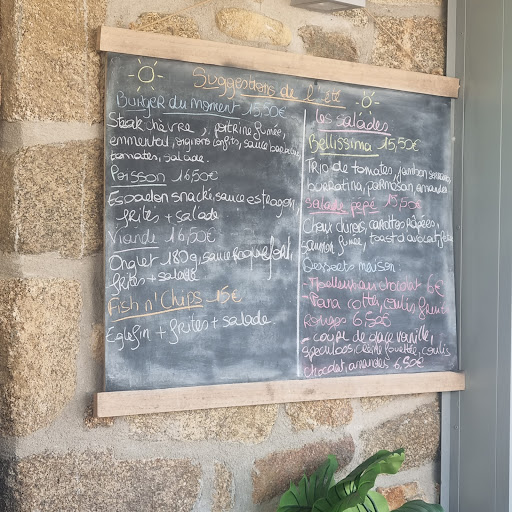 Suggestions de l'été
Burger du moment 15,50€
Steak hèvre, poitrine fumée,
emmental, oignons confits, sauce barbecue
tomates, salade.
Poisson 16,50€
Espadon snacké, sauce estragon,
frites + salade
Viande 16,50€
Onglet 180g, sauce roquefort
frites + salade
Fish n' Chips 15€
Eglefin + frites + salade
Les salades
Bellissima 15,50€
Trio de tomates, jambon
burratina, parmesan, amandes
Salade pépé 15,50€
Choux chinois, carottes râpées,
saumon fumé, toast d'avocat, feta
Desserts maison
- Moelleux au chocolat 6€
- Pana cotta, coulis fruits
Rouges 6,50€
- coupe de glace vanille,
spéculoos, crème fouettée, coulis
chocolat, amandes 6,50€